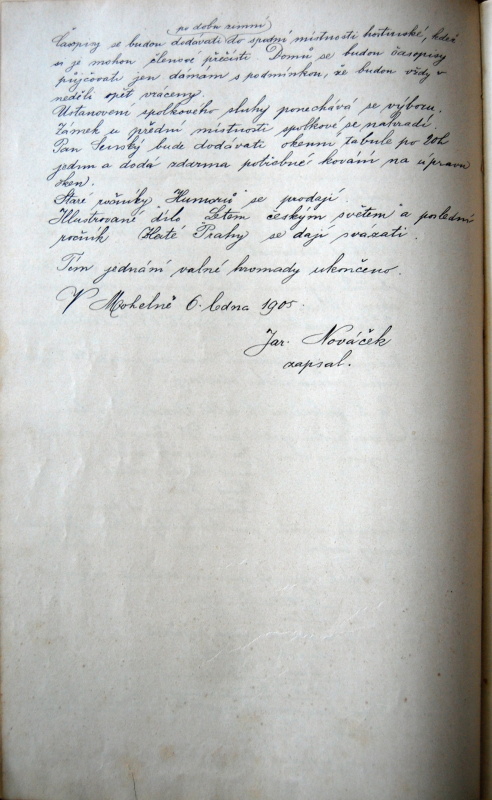 po dobu zimní
Časopisy se budou dodávati do spodní místnosti hostinské, kdež
si je mohou členové přečísti Domů se budou časopisy
půjčovati jen dámám s podmínkou, že budou vždy v
neděli opět vráceny.
Ustanovení spolkového sluhy ponechává se výboru.
Zámek u přední místnosti spolkové se nahradí.
Pan Senský bude dodávati okenní tabule po 20h
jednu a dodá zdarma potřebné kování na úpravu
oken.
Staré ročníky „Humorů" se prodají.
Illustrované dílo „Letem českým světem" a poslední
ročník „Zlaté Prahy" se dají svázati.
Tím jednání valné hromady ukončeno.
V Mohelně 6. ledna 1905.
Jar. Nováček
zapsal.